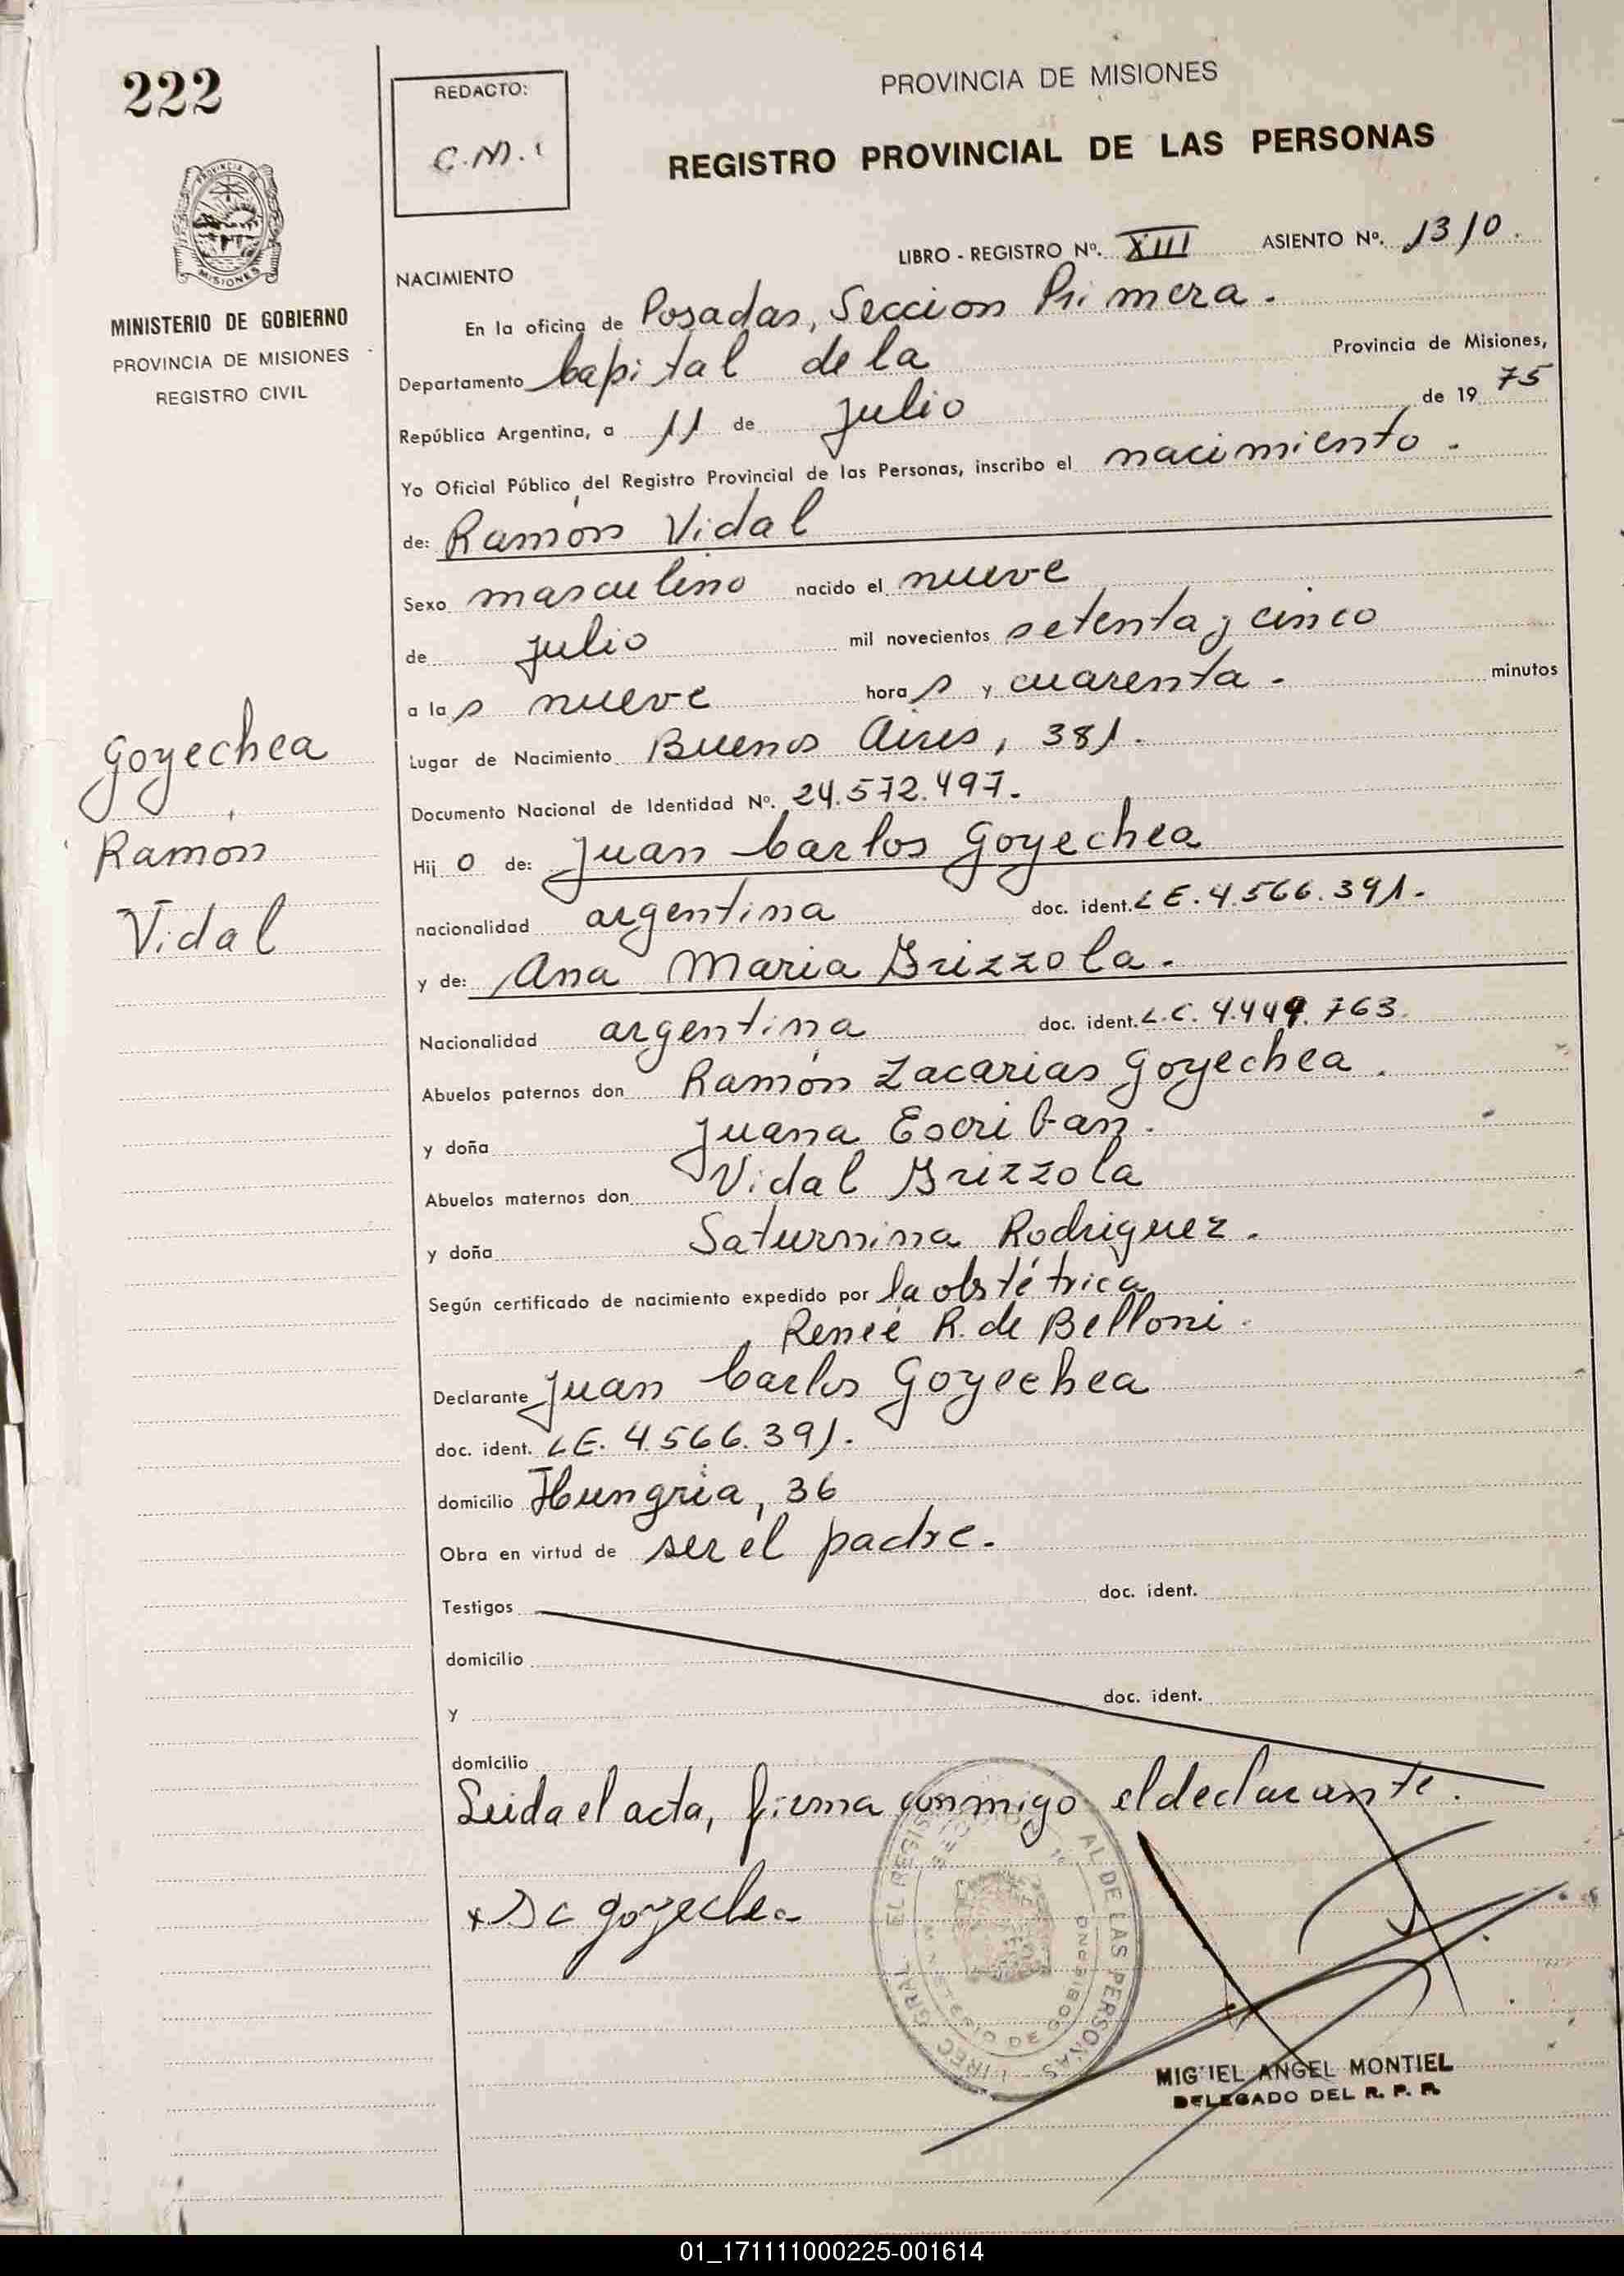 222
PROVINCIA DE
MISIONES
MINISTERIO DE GOBIERNO
PROVINCIA DE MISIONES
REGISTRO CIVIL
Goyechea
Ramón
Vidal
REDACTO:
C.M.
PROVINCIA DE MISIONES
REGISTRO PROVINCIAL DE LAS PERSONAS
LIBRO - REGISTRO Nº. XIII ASIENTO Nº. 1310.
NACIMIENTO
En la oficina de Posadas, Seccion Primera.
Departamento Capital de la Provincia de Misiones,
República Argentina, a 11 de Julio de 1975
Yo Oficial Público del Registro Provincial de las Personas, inscribo el nacimiento.
de: Ramón Vidal
Sexo masculino nacido el nueve
de Julio mil novecientos setenta y cinco
a las nueve horas y cuarenta. minutos
Lugar de Nacimiento Buenos Aires, 381.
Documento Nacional de Identidad Nº. 24.572.497.
Hijo de: Juan Carlos Goyechea
nacionalidad argentina doc. ident. L E. 4.566.391.
y de: Ana Maria Brizzola.
Nacionalidad argentina doc. ident. L.C. 4.449.763.
Abuelos paternos don Ramón Zacarias Goyechea.
y doña Juana Escriban.
Abuelos maternos don Vidal Brizzola
y doña Saturnina Rodriguez.
Según certificado de nacimiento expedido por la obstétrica
Reneé R. de Belloni.
Declarante Juan Carlos Goyechea
doc. ident. LE. 4.566.391.
domicilio Hungria, 36
Obra en virtud de ser el padre.
Testigos doc. ident.
domicilio
y doc. ident.
domicilio
Leida el acta, firma conmigo el declarante.
goyechea
AL DE LAS PERSONAS
MINISTERIO DE GOBIERNO
MIGUEL ANGEL MONTIEL
DELEGADO DEL R. P. P.
01_171111000225-001614